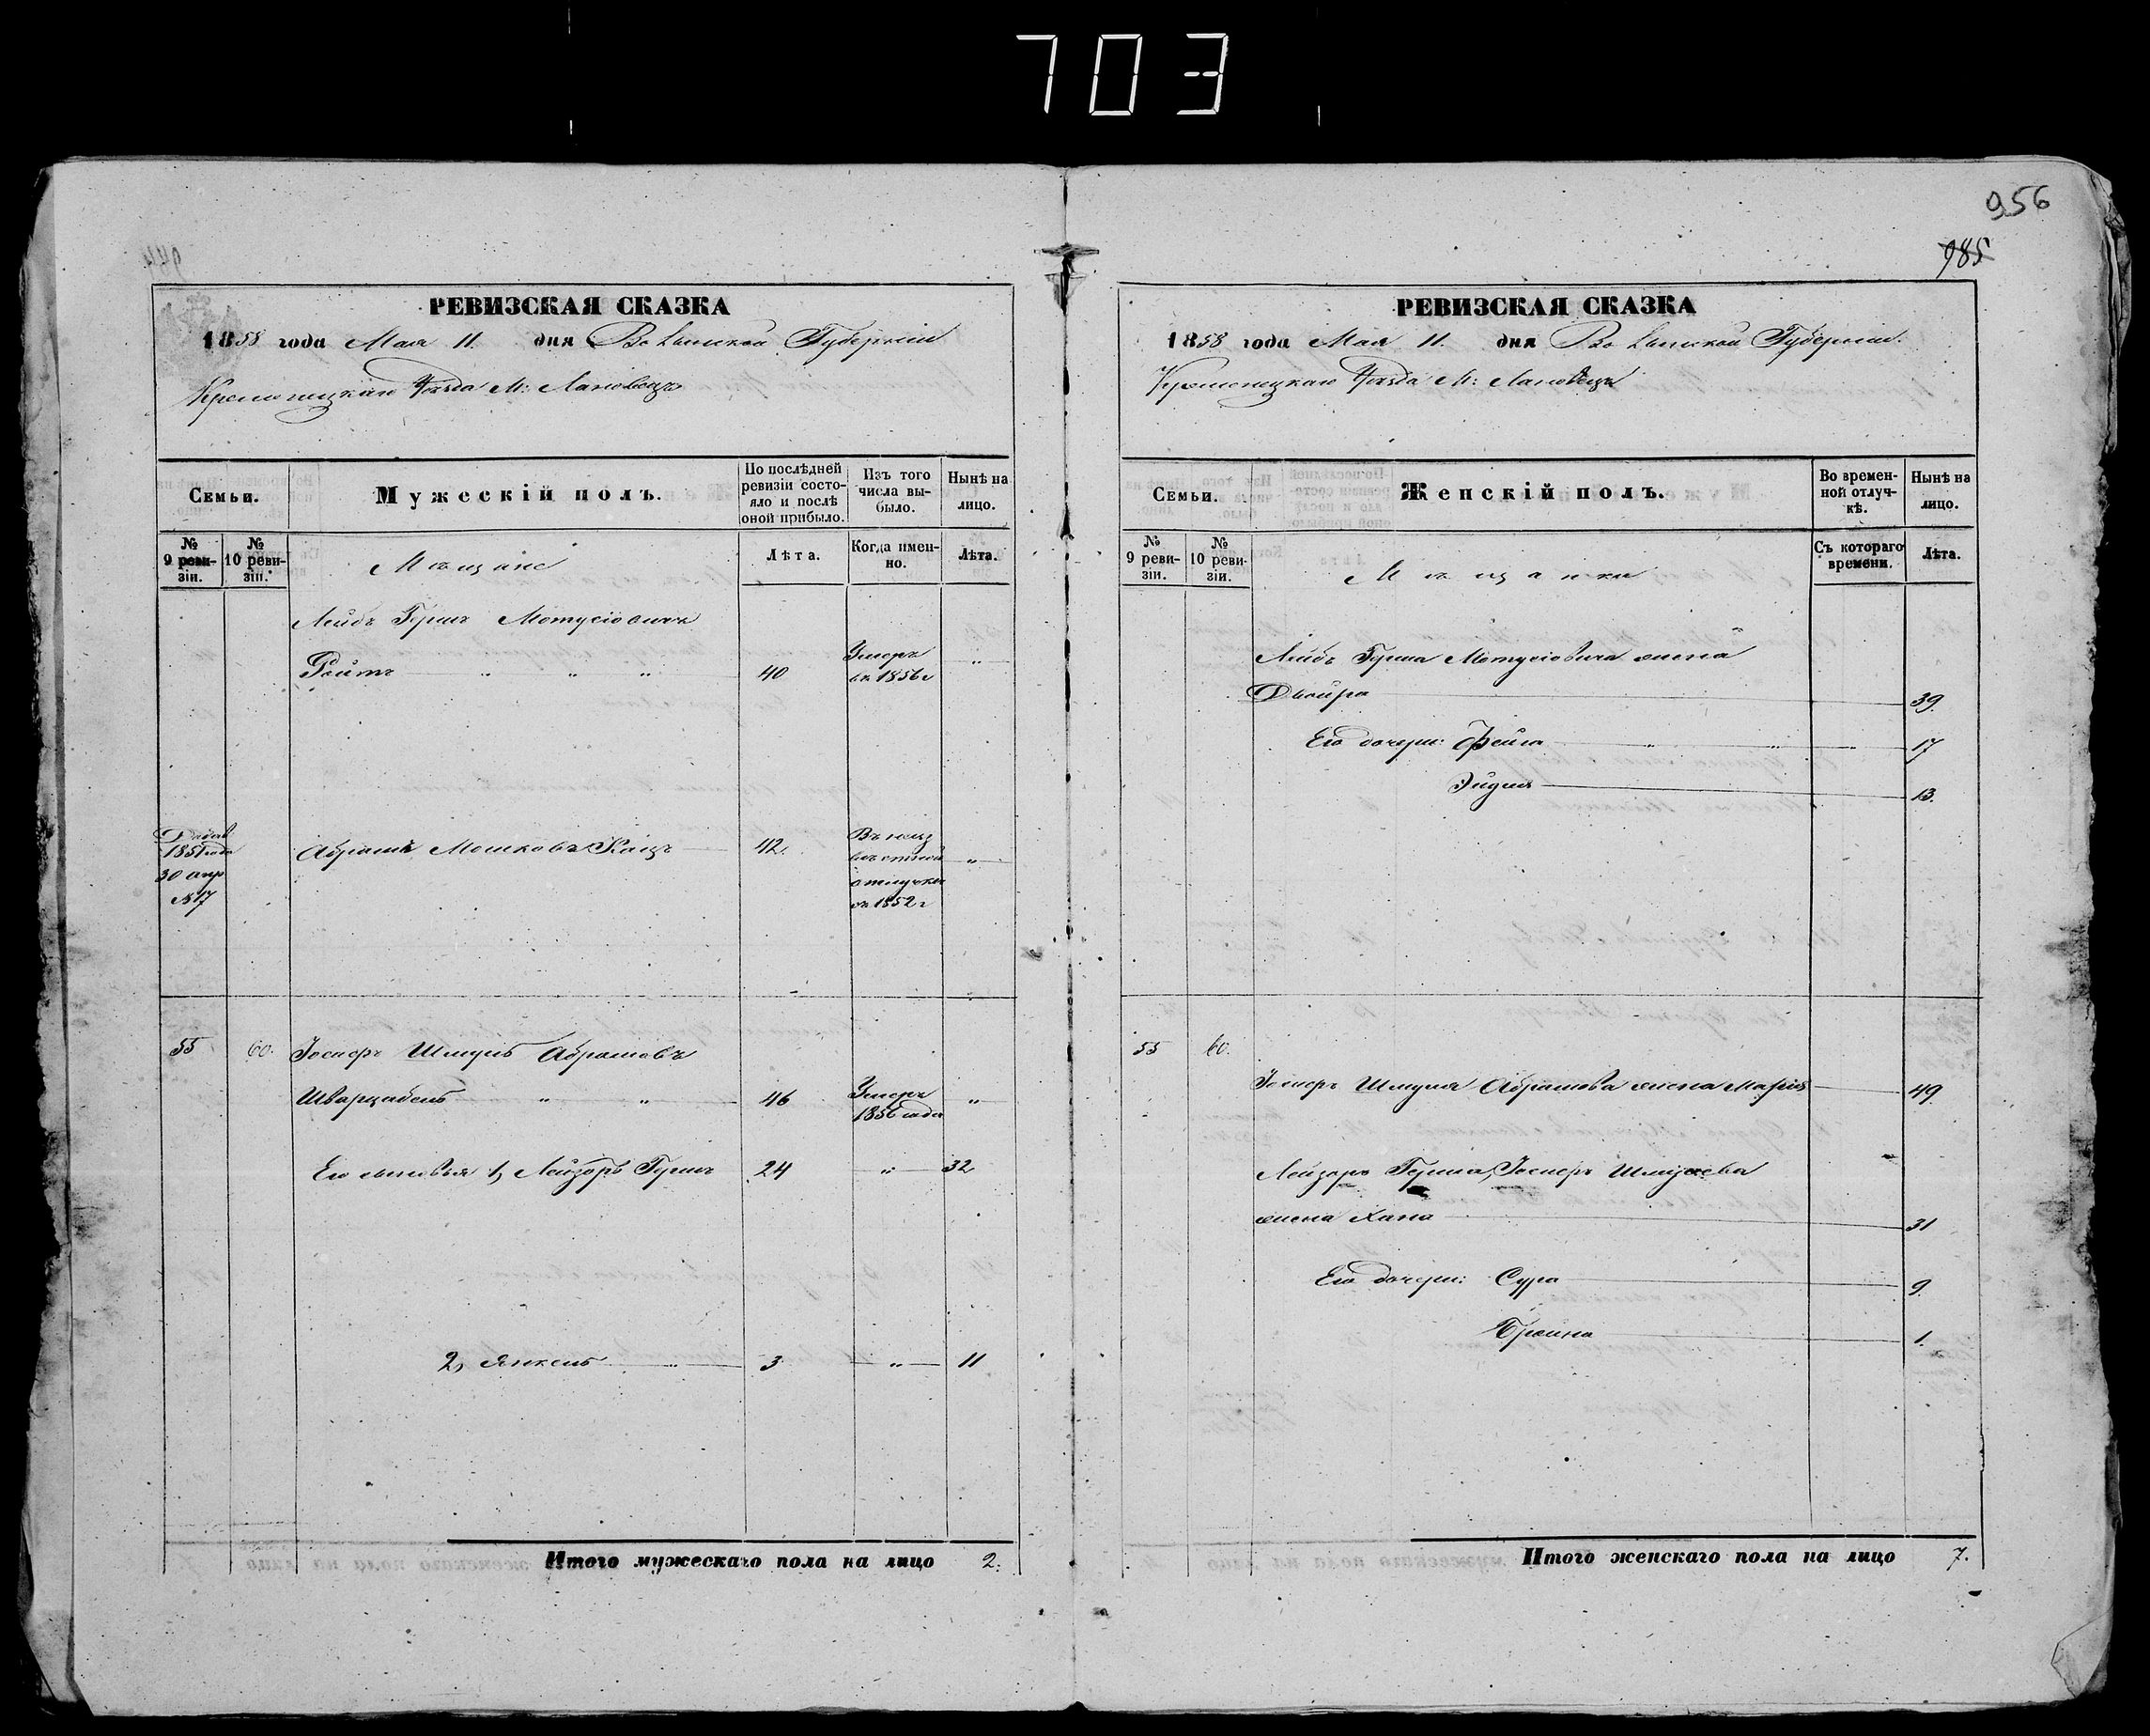 703
956
985
РЕВИЗСКАЯ СКАЗКА
1858 года Мая 11. дня Волынской Губерніи
Кременецкаго Уезда М: Лановецъ
Семьи.
Мужескій полъ.
По послѣдней ревизіи состояло и послѣ оной прибыло.
Изъ того числа выбыло.
Нынѣ на лицо.
№ 9 ревизіи.
№ 10 ревизіи.
Мѣщане
Лѣта.
Когда именно.
Лѣта.
Лейбъ Гершъ Мотусіовичъ
Ройтъ " " " 40 Умеръ въ 1856 г "
1851 года 30 апр №17
Абрамъ Мошковъ Кацъ 42. отлучке съ 1852 г "
55 60. Іосифъ Шмуль Абрамовъ
Шварцабель " " 46 Умеръ 1856 года "
Его сыновья 1, Лейзоръ Гершъ 24 " 32
2, Янкель " 3 " 11
Итого мужескаго пола на лицо 2.
РЕВИЗСКАЯ СКАЗКА
1858 года Мая 11. дня Волынской Губерніи.
Кременецкаго Уезда М: Лановецъ
Семьи.
Женскій полъ.
Во временной отлучкѣ.
Нынѣ на лицо.
№ 9 ревизіи.
№ 10 ревизіи.
Мѣщанки
Съ котораго времени.
Лѣта.
Лейбъ Герша Мотусіовича жена
Двойра 39.
Его дочери: Фейга " " " 17
Эйдля 13.
55 60.
Іосифъ Шмуля Абрамова жена Марія 49.
Лейзоръ Герша, Іосифъ Шмулева
жена Хана 31
Его дочери: Сура 9
Брейна 1.
Итого женскаго пола на лицо 7.